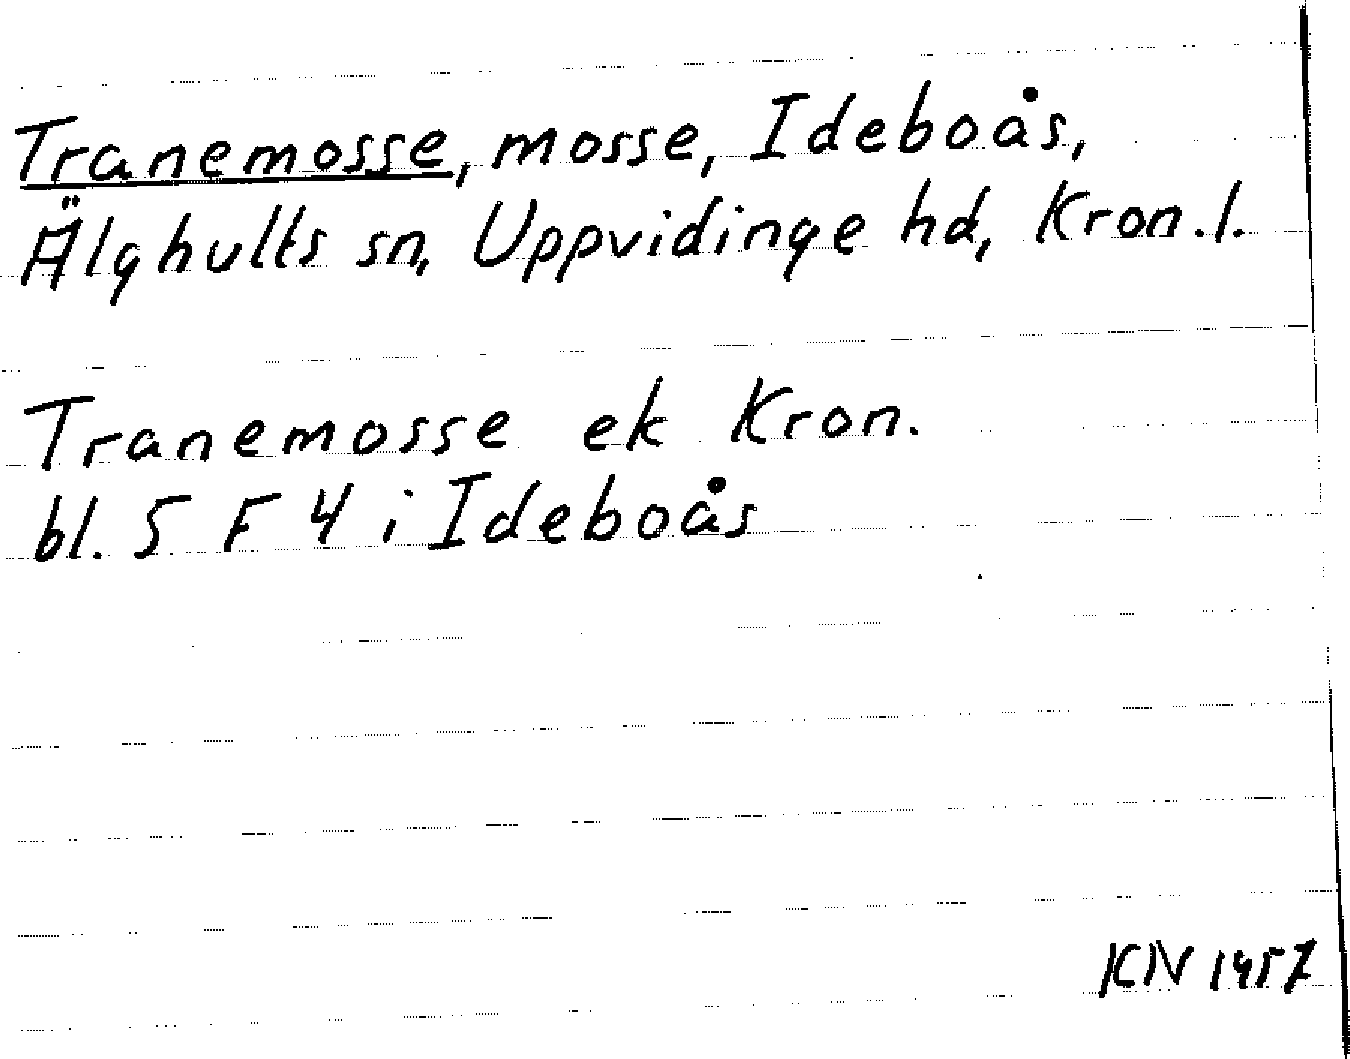 Tranemosse, mosse, Ideboås,
Älghults sn, Uppvidinge hd, Kron.l.
Tranemosse ek Kron.
bl. 5 F 4 i Ideboås
KN 1957